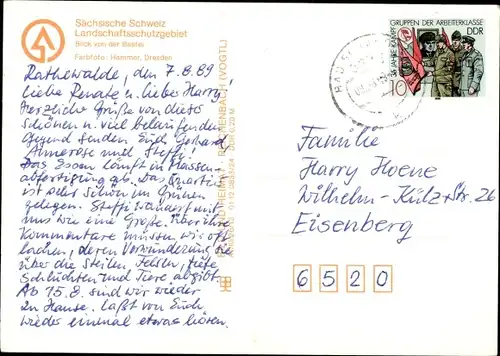 Sächsische Schweiz
Landschaftsschutzgebiet
Blick von der Bastei
Farbfoto: Hammer, Dresden
Rathewalde, den 7.8.89
Liebe Renate u. lieber Harry!
Herzliche Grüße von dieser
schönen u. viel belaufenen
Gegend senden Euch Gerhard
Annerose und Steffi.
Das Essen läuft in Massen-
abfertigung ab. Das Quartier
ist aber schön im Grünen
gelegen. Steffi wandert mit
uns wie eine Große. Über ihre
Kommentare müssen wir oft
lachen, deren Verwunderung sie
über die steilen Felsen, tiefe
Schluchten und Tiere abgibt.
Ab 15.8. sind wir wieder
zu Hause. Laßt von Euch
wieder einmal etwas hören.
(VOGTL)
GRUPPEN DER ARBEITERKLASSE
DDR
10
BAD
Familie
Harry Hoene
Wilhelm-Külz-Str. 26
Eisenberg
6520